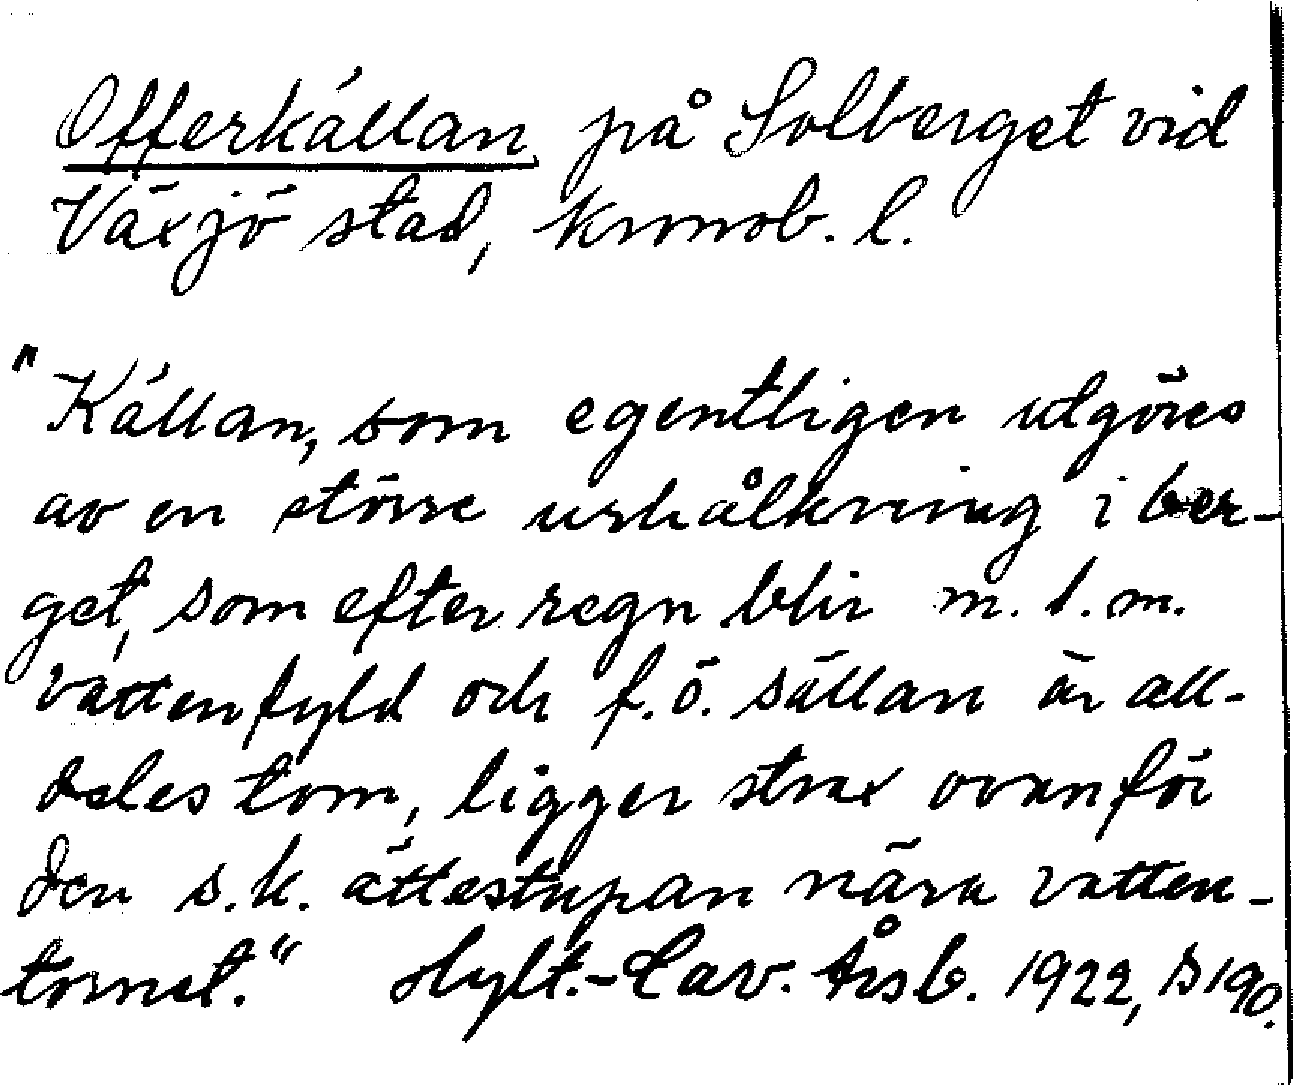 Offerkällan på Solberget vid
Växjö stad, Kronob. l.
"Källan, som egentligen utgöres
av en större urhålkning i ber-
get, som efter regn blir m. l. m.
vattenfyld och f.ö. sällan är all-
deles tom, ligger strax ovanför
den s.k. ättestupan nära vatten-
tornet." Hylt.-Cav. Årsb. 1922, s 190.